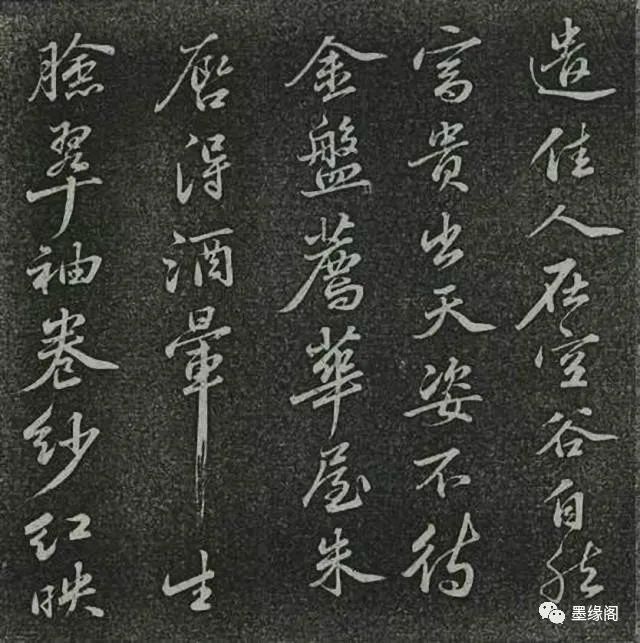 遣佳人在空谷自然
富貴出天姿不待
金盤薦華屋朱
唇得酒暈生
臉翠袖卷紗紅映
墨缘阁